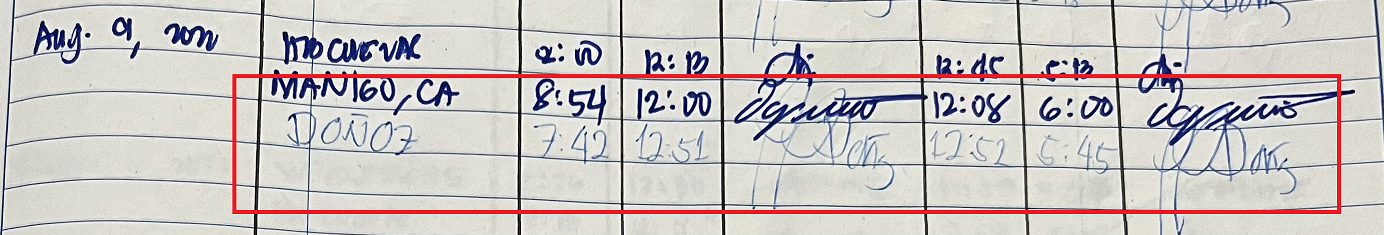 Aug. 9, 2022 8:00 12:13 12:45 5:13
MANIGO, CA 8:54 12:00 12:08 6:00
DOÑOZ 7:42 12:51 12:52 5:45